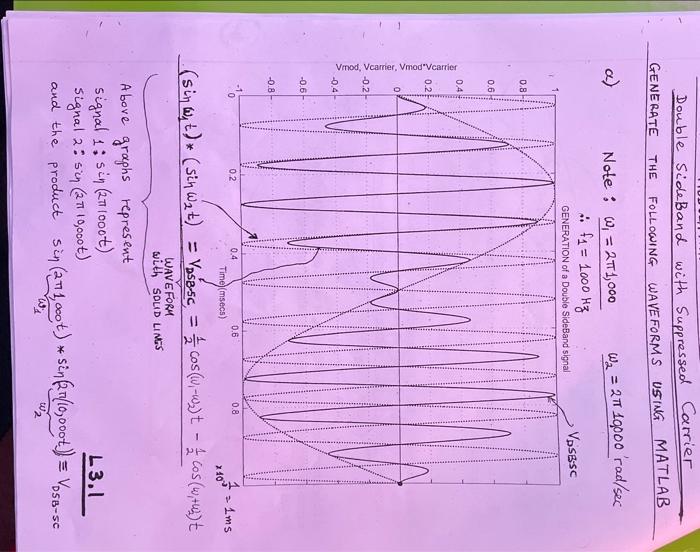 Double SideBand with Suppressed Carrier
GENERATE THE FOLLOWING WAVEFORMS USING MATLAB
a) Note : ω1 = 2π1,000 ω2 = 2π 10,000 rad/sec
∴ f1 = 1000 Hz
VDSBSC
GENERATION of a Double SideBand signal
Vmod, Vcarrier, Vmod*Vcarrier
1
0.8
0.6
0.4
0.2
0
-0.2
-0.4
-0.6
-0.8
-1
0 0.2 0.4 0.6 0.8 1 = 1ms
x10⁻³
Time(msecs)
(sin ω1t) * (sin ω2t) = VDSB-SC = 1/2 cos(ω1-ω2)t - 1/2 cos(ω1+ω2)t
WAVEFORM
with SOLID LINES
Above graphs represent
signal 1 : sin (2π1000t)
signal 2 : sin (2π10,000t)
and the product sin (2π1,000t) * sin(2π(10,000t)) = VDSB-SC
ω1 ω2
L3.1